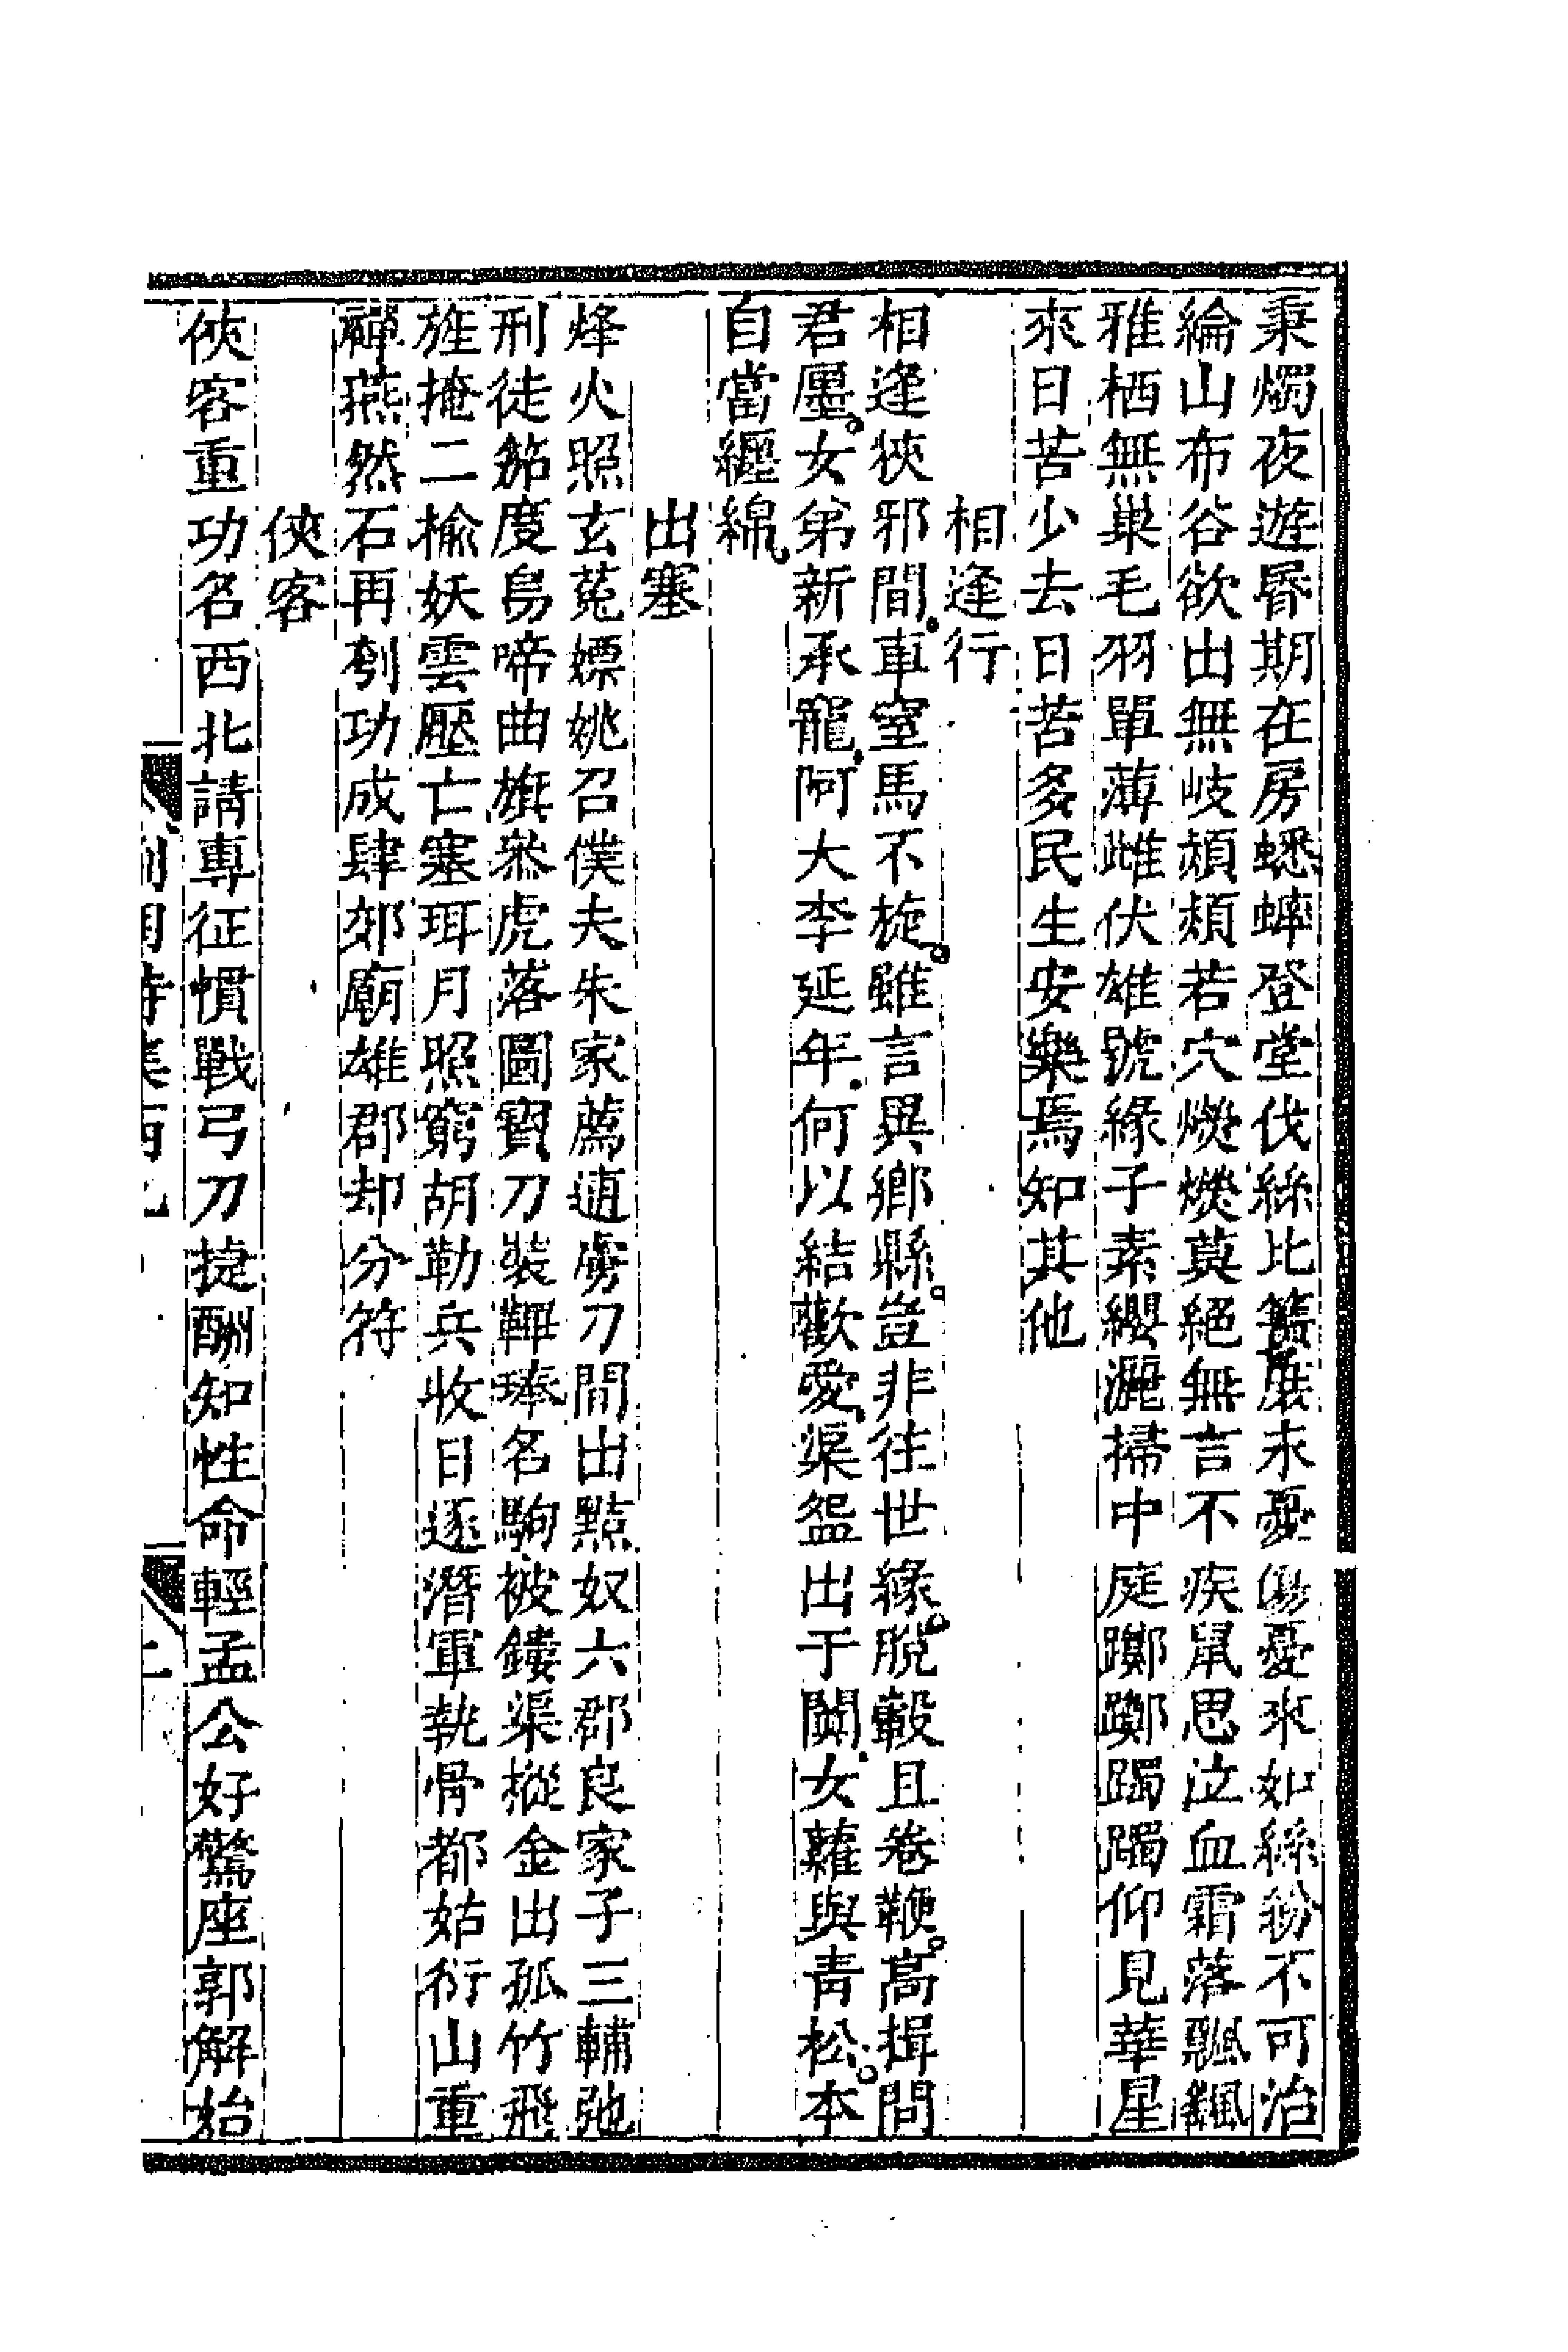 秉燭夜遊晷期在房蟋蟀登堂伐絲比簧展未憂傷憂來如絲紛不可治
綸山布谷欲出無岐頍頍若穴熒熒莫絕無言不疾鼠思泣血霜落飄颻
雅栖無巢毛羽單薄雌伏雄號緣子素纓灑掃中庭躑躑躅躅仰見華星
來日苦少去日苦多民生安樂焉知其他
相逢行
相逢狹邪間車窒馬不旋雖言異鄉縣豈非往世緣脫轂且卷鞭高揖問
君廛女弟新承寵阿大李延年何以結歡愛渠盌出于闐女蘿與青松本
自當纒綿
出塞
烽火照玄菟嫖姚召僕夫朱家薦逋虜刀間出黠奴六郡良家子三輔弛
刑徒笳度烏啼曲旗添虎落圖寶刀裝鞞琫名駒被鏤渠摐金出孤竹飛
旌掩二榆妖雲壓亡塞珥月照窮胡勒兵收日逐潛軍執骨都姑衍山重
禪燕然石再刳功成肆郊廟雄郡却分符
俠客
俠客重功名西北請專征慣戰弓刀捷酬知性命輕孟公好驚座郭解始